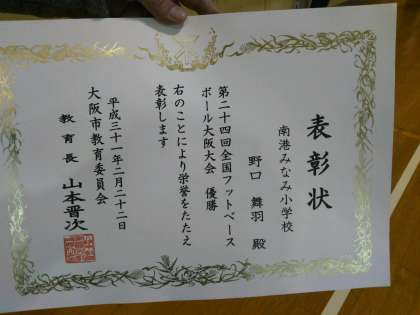 表彰状
南港みなみ小学校
野口 舞羽 殿
第二十四回全国フットベース
ボール大阪大会 優勝
右のことにより栄誉をたたえ
表彰します
平成三十一年二月二十二日
大阪市教育委員会
教育長 山本晋次